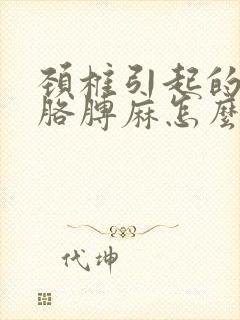 頸椎引起的
胳膊麻怎麼
代坤